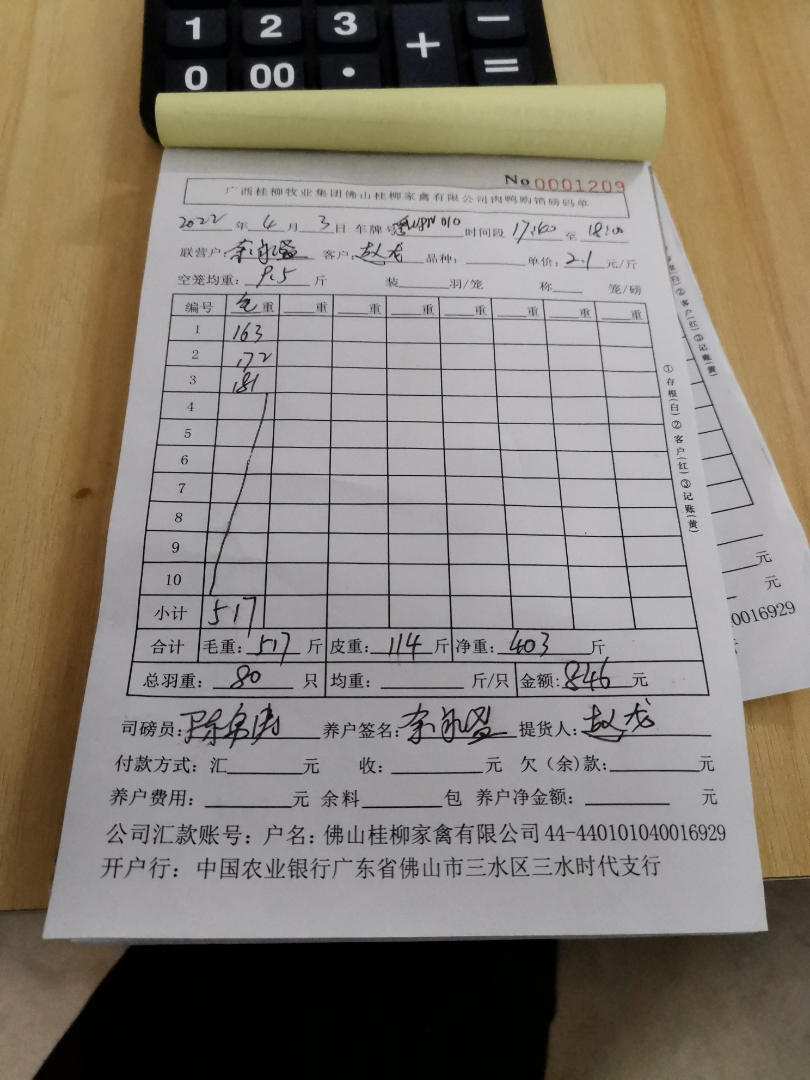 1 2 3 + −
0 00 · =
No 0001209
广西桂柳牧业集团佛山桂柳家禽有限公司肉鸭购销磅码单
2022 年 4 月 3 日 车牌号 010 时间段 至 18:00
联营户: 客户: 赵龙 品种: 单价: 2.1 元/斤
空笼均重: 9.5 斤 装 羽/笼 称 笼/磅
编号 毛重 重 重 重 重 重 重 重
1 163
2 172
3 181
4
5
6
7
8
9
10
小计 517
合计 毛重: 517 斤 皮重: 114 斤 净重: 403 斤
总羽重: 80 只 均重: 斤/只 金额: 846 元
司磅员: 养户签名: 提货人: 赵龙
付款方式: 汇 元 收: 元 欠(余)款: 元
养户费用: 元 余料 包 养户净金额: 元
公司汇款账号: 户名: 佛山桂柳家禽有限公司 44-440101040016929
开户行: 中国农业银行广东省佛山市三水区三水时代支行
①存根(白)②客户(红)③记账(黄)
②客户(红)③记账(黄)
元
元
0016929